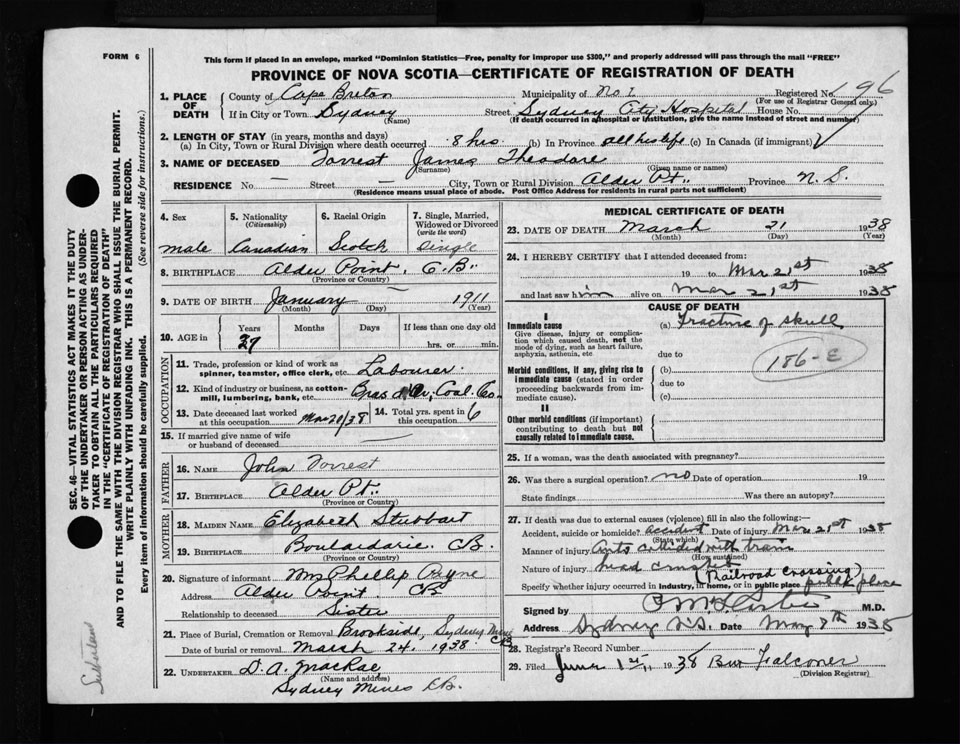 FORM 6
This form if placed in an envelope, marked "Dominion Statistics—Free, penalty for improper use $300," and properly addressed will pass through the mail "FREE"
PROVINCE OF NOVA SCOTIA—CERTIFICATE OF REGISTRATION OF DEATH
SEC. 46—VITAL STATISTICS ACT MAKES IT THE DUTY
OF THE UNDERTAKER OR PERSON ACTING AS UNDER-
TAKER TO OBTAIN ALL THE PARTICULARS REQUIRED
IN THE "CERTIFICATE OF REGISTRATION OF DEATH"
AND TO FILE THE SAME WITH THE DIVISION REGISTRAR WHO SHALL ISSUE THE BURIAL PERMIT.
WRITE PLAINLY WITH UNFADING INK. THIS IS A PERMANENT RECORD.
Every item of information should be carefully supplied. (See reverse side for instructions.)
1. PLACE OF DEATH County of Cape Breton Municipality of No. 1 Registered No. 196
(For use of Registrar General only.)
If in City or Town Sydney Street Sydney City Hospital House No.
(Name) (If death occurred in a hospital or institution, give the name instead of street and number)
2. LENGTH OF STAY (in years, months and days)
(a) In City, Town or Rural Division where death occurred 8 hrs (b) In Province all his life (c) In Canada (if immigrant)
3. NAME OF DECEASED Forrest James Theodore
(Surname) (Given name or names)
RESIDENCE No. — Street — City, Town or Rural Division Alder Pt. Province N. S.
(Residence means usual place of abode. Post Office Address for residents in rural parts not sufficient)
4. Sex male
5. Nationality (Citizenship) Canadian
6. Racial Origin Scotch
7. Single, Married, Widowed or Divorced (write the word) Single
8. BIRTHPLACE Alder Point, C. B.
(Province or Country)
9. DATE OF BIRTH January 1911
(Month) (Day) (Year)
10. AGE in Years 27 Months Days If less than one day old hrs. or min.
OCCUPATION
11. Trade, profession or kind of work as spinner, teamster, office clerk, etc. Labourer
12. Kind of industry or business, as cotton-mill, lumbering, bank, etc. Bras d'Or Coal Co.
13. Date deceased last worked at this occupation Mar 20/38
14. Total yrs. spent in this occupation 6
15. If married give name of wife or husband of deceased
FATHER
16. NAME John Forrest
17. BIRTHPLACE Alder Pt.
(Province or Country)
MOTHER
18. MAIDEN NAME Elizabeth
19. BIRTHPLACE Boulardarie CB.
(Province or Country)
20. Signature of informant Mrs Phillip Payne
Address Alder Point CB
Relationship to deceased Sister
21. Place of Burial, Cremation or Removal Brookside, Sydney Mines CB
Date of burial or removal March 24. 1938
22. UNDERTAKER D. A. MacRae
(Name and address)
Sydney Mines CB.
MEDICAL CERTIFICATE OF DEATH
23. DATE OF DEATH March 21 1938
(Month) (Day) (Year)
24. I HEREBY CERTIFY that I attended deceased from:
19 to Mar 21st 1938
and last saw him alive on Mar 21st 1938
CAUSE OF DEATH
I
Immediate cause (a) Fracture of skull
Give disease, injury or complication which caused death, not the mode of dying, such as heart failure, asphyxia, asthenia, etc
due to
186-E
Morbid conditions, if any, giving rise to immediate cause (stated in order proceeding backwards from immediate cause).
(b)
due to
(c)
II
Other morbid conditions (if important) contributing to death but not causally related to immediate cause.
25. If a woman, was the death associated with pregnancy?
26. Was there a surgical operation? no Date of operation 19
State findings Was there an autopsy?
27. If death was due to external causes (violence) fill in also the following:—
Accident, suicide or homicide? accident Date of injury Mar 21st 1938
(State which)
Manner of injury Auto collided with train
(How sustained)
Nature of injury head crushed
(Railroad crossing)
Specify whether injury occurred in industry, in home, or in public place public place
Signed by M.D.
Address Sydney N.S. Date May 8th 1938
28. Registrar's Record Number
29. Filed June 1st, 1938 Falconer
(Division Registrar)